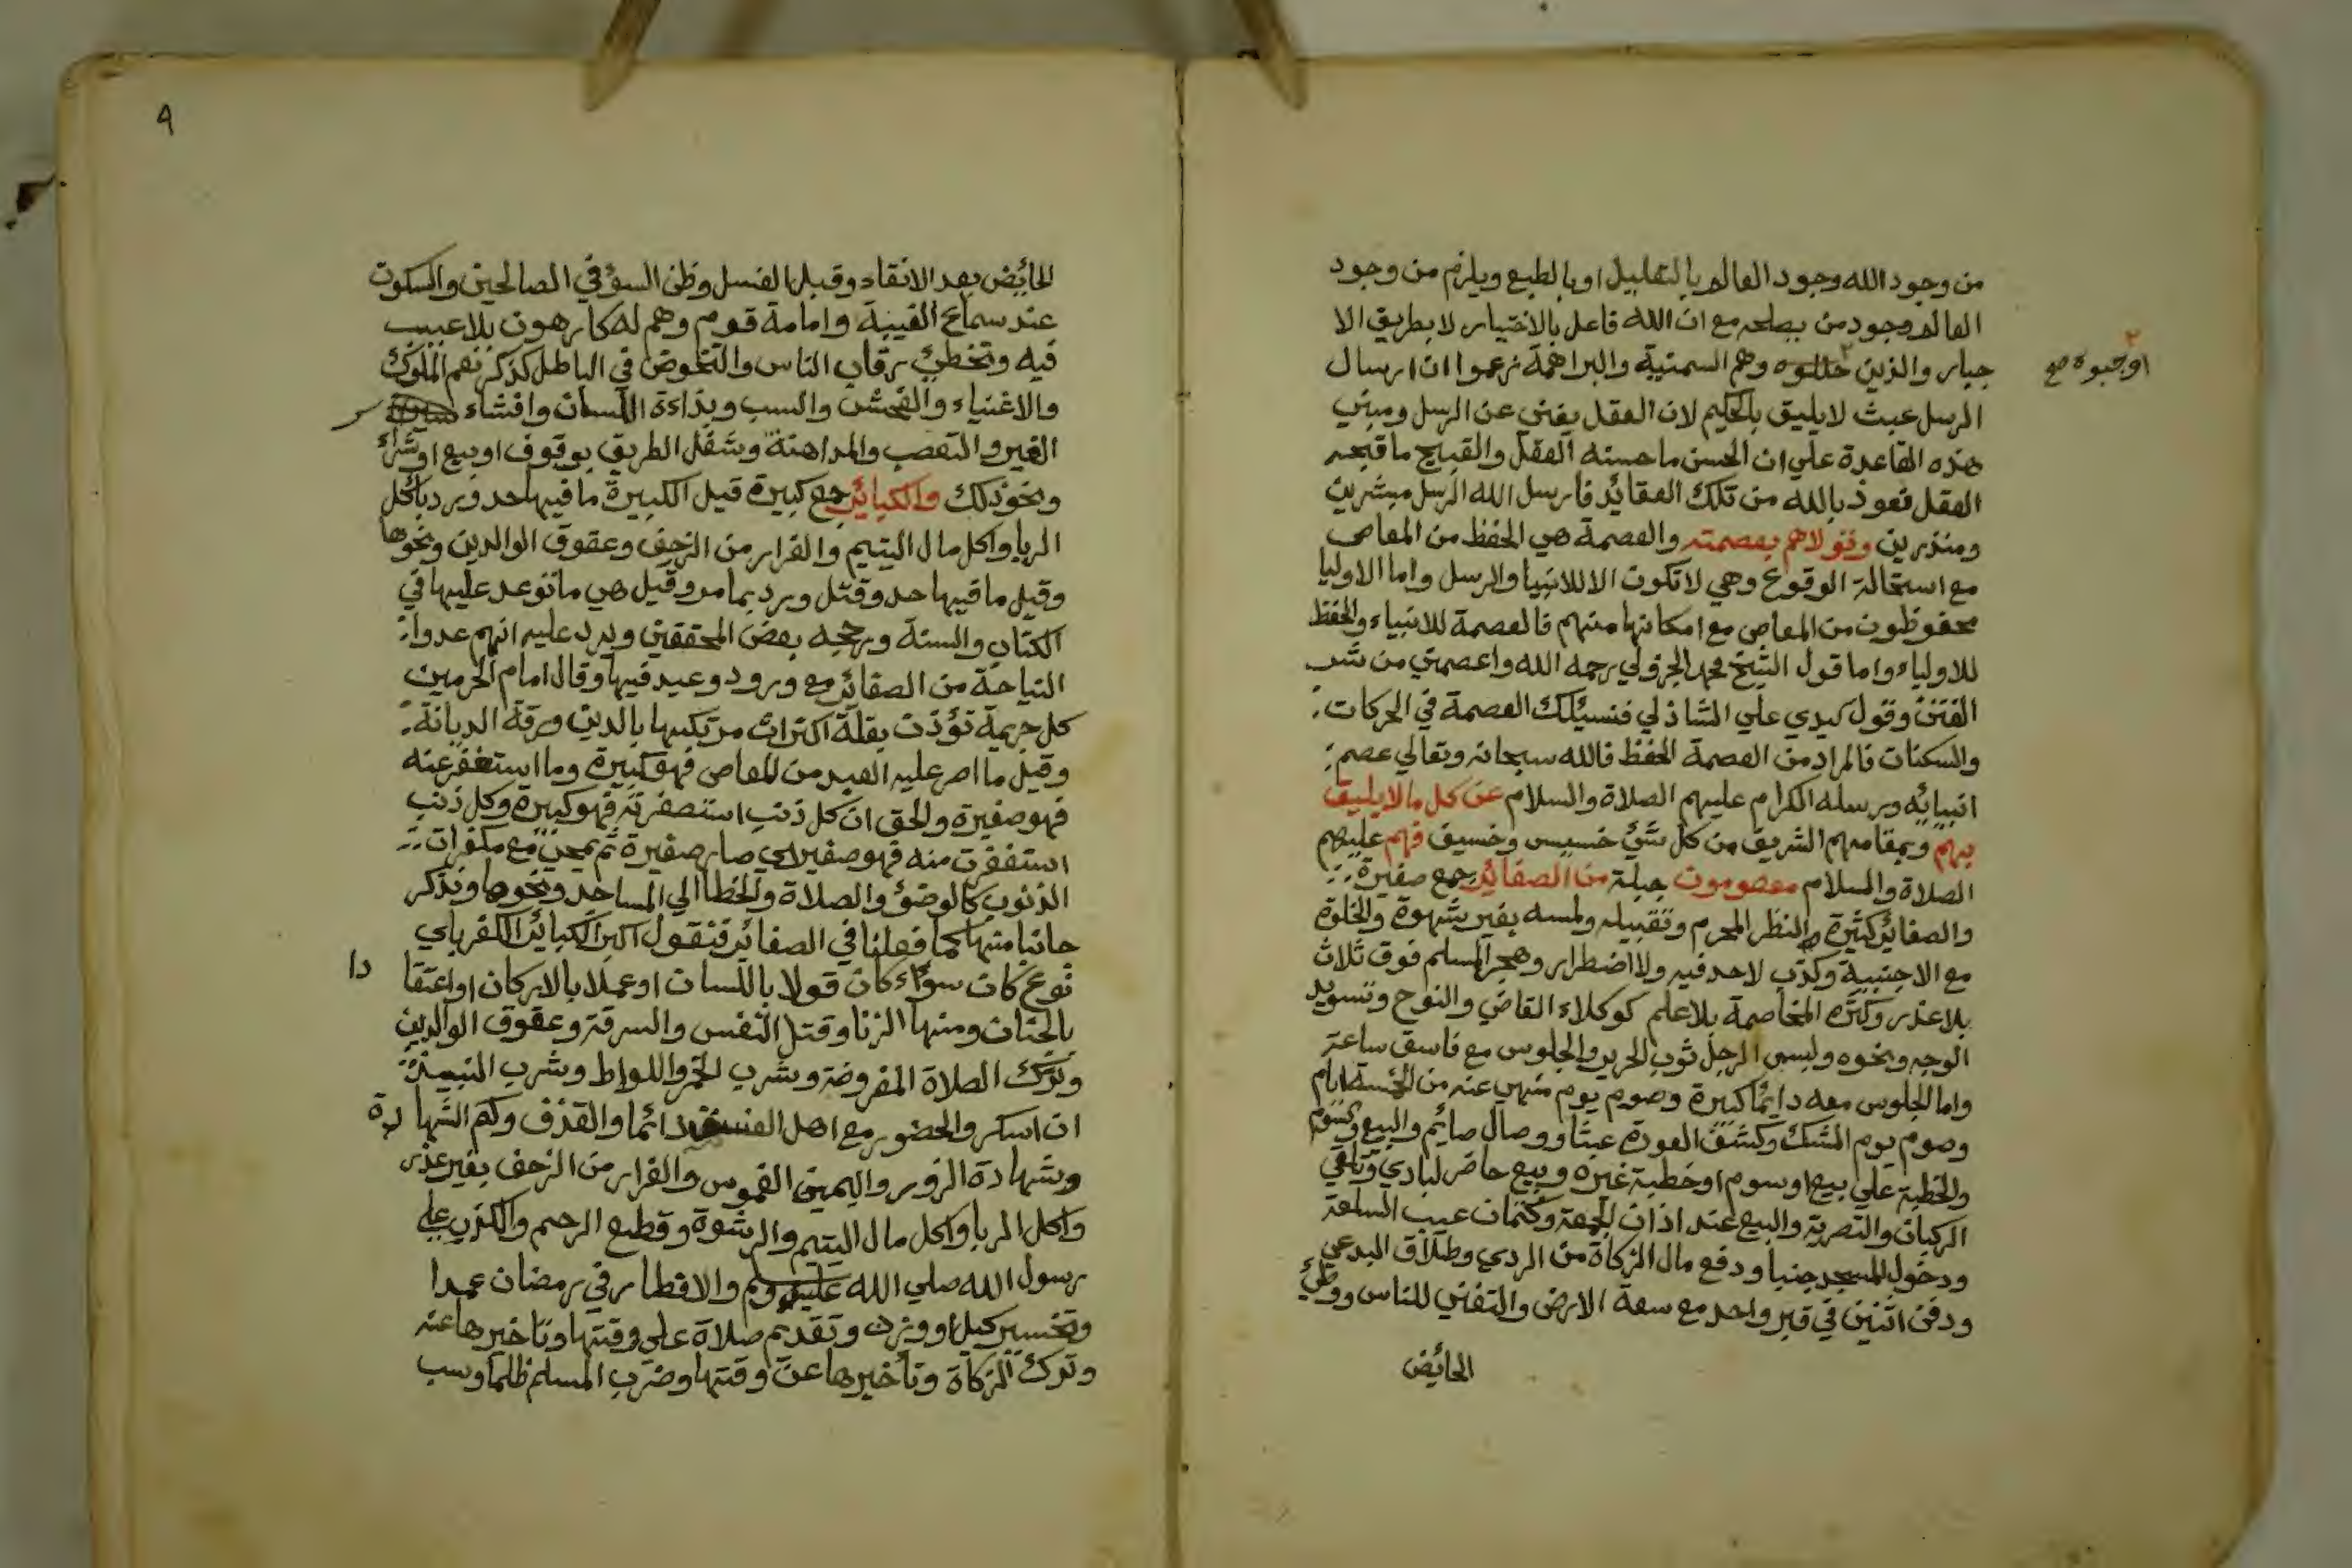 من وجود الله وجود العالم بالتعليل او بالطبع ويلزم من وجود
العالم وجود من يصلحه مع ان الله فاعل بالاختيار لا بطريق الا
جبار والذين وهم السمنية والبراهمة زعموا ان ارسال
اوجبوه صح
الرسل عبث لا يليق بالحكيم لان العقل يغني عن الرسل ومبني
هذه القاعدة علي ان الحسن ما حسنه العقل والقبيح ما قبحه
العقل نعوذ بالله من تلك العقائد فارسل الله الرسل مبشرين
ومنذرين وتولاهم بعصمته والعصمة هي الحفظ من المعاصي
مع استحالة الوقوع وهي لا تكون الا للانبيا والرسل واما الاوليا
محفوظون من المعاصي مع امكانها منهم فالعصمة للانبياء والحفظ
للاولياء واما قول الشيخ محمد الجزولي رحمه الله واعصمني من شر
الفتن وقول سيدي علي الشاذلي فنسئلك العصمة في الحركات
والسكنات فالمراد من العصمة الحفظ فالله سبحانه وتعالي عصم
انبيائه ورسله الكرام عليهم الصلاة والسلام عن كل ما لا يليق
بهم وبمقامهم الشريف من كل شئ خسيس وخسيف فهم عليهم
الصلاة والسلام معصومون جبلة من الصغائر جمع صغيرة
والصغائر كثيرة والنظر المحرم وتقبيله ولمسه بغير شهوة والخلوة
مع الاجنبية وكذب لاحد فيه ولا اضطرار وهجر المسلم فوق ثلاث
بلا عذر وكثرة المخاصمة بلا علم كوكلاء القاضي والنوح وتسويد
الوجه ونحوه ولبس الرجل ثوب الحرير والجلوس مع فاسق ساعة
واما الجلوس معه دائما كبيرة وصوم يوم منهي عنه من الخمسة ايام
وصوم يوم الشك وكشف العورة عبثا ووصال صائم والبيع وسوم
والخطبة علي بيع او سوم او خطبة غيره وبيع حاضر لبادي وتلقي
الركبان والتصرية والبيع عند اذان الجمعة وكتمان عيب السلعة
ودخول المسجد جنبا ودفع مال الزكاة من الردي وطلاق البدعي
ودفن اثنين في قبر واحد مع سعة الارض والتغني للناس ووطئ
الحائض
٩
الحائض بعد الانقاء وقبل الغسل وظن السوء في الصالحين والسكوت
عند سماع الغيبة وامامة قوم وهم له كارهون بلا عيب
فيه وتخطئ رقاب الناس والتخوض في الباطل كذكر نعم الملوك
والاغنياء والفحش والسب وبذاءة اللسان وافشاء سر
الغير والتعصب والمداهنة وشغل الطريق بوقوف او بيع او شراء
ونحو ذلك والكبائر جمع كبيرة قيل الكبيرة ما فيها حد ويرد باكل
الربا واكل مال اليتيم والفرار من الزحف وعقوق الوالدين ونحوها
وقيل ما فيها حد وقتل ويرد بما مر وقيل هي ما توعد عليها في
الكتاب والسنة ورجحه بعض المحققين ويرد عليه انهم عدوا
النياحة من الصغائر مع ورود وعيد فيها وقال امام الحرمين
كل جريمة تؤذن بقلة اكتراث مرتكبها بالدين ورقة الديانة
وقيل ما اصر عليه العبد من المعاصي فهو كبيرة وما استغفر عنه
فهو صغيرة والحق ان كل ذنب استصغرته فهو كبيرة وكل ذنب
استغفرت منه فهو صغير اي صار صغيرة ثم تمحى مع مكفرات
الذنوب كالوضؤ والصلاة والخطا الي المساجد ونحوها ونذكر
جانبا منها كما فعلنا في الصغائر فنقول اكبر الكبائر الكفر باي
نوع كان سواء كان قولا باللسان او عملا بالاركان او اعتقا دا
بالجنان ومنها الزنا وقتل النفس والسرقة وعقوق الوالدين
وترك الصلاة المفروضة وشرب الخمر واللواط وشرب النبيذ
ان اسكر والحضور مع اهل الفسق دائما والقذف وكتم الشها دة
وشهادة الزور واليمين الغموس والفرار من الزحف بغير عذر
واكل الربا واكل مال اليتيم والرشوة وقطع الرحم والكذب علي
رسول الله صلي الله عليه وسلم والافطار في رمضان عمدا
وتخسير كيل او وزن وتقديم صلاة علي وقتها وتاخيرها عنه
وترك الزكاة وتأخيرها عن وقتها وضرب المسلم ظلما وسب